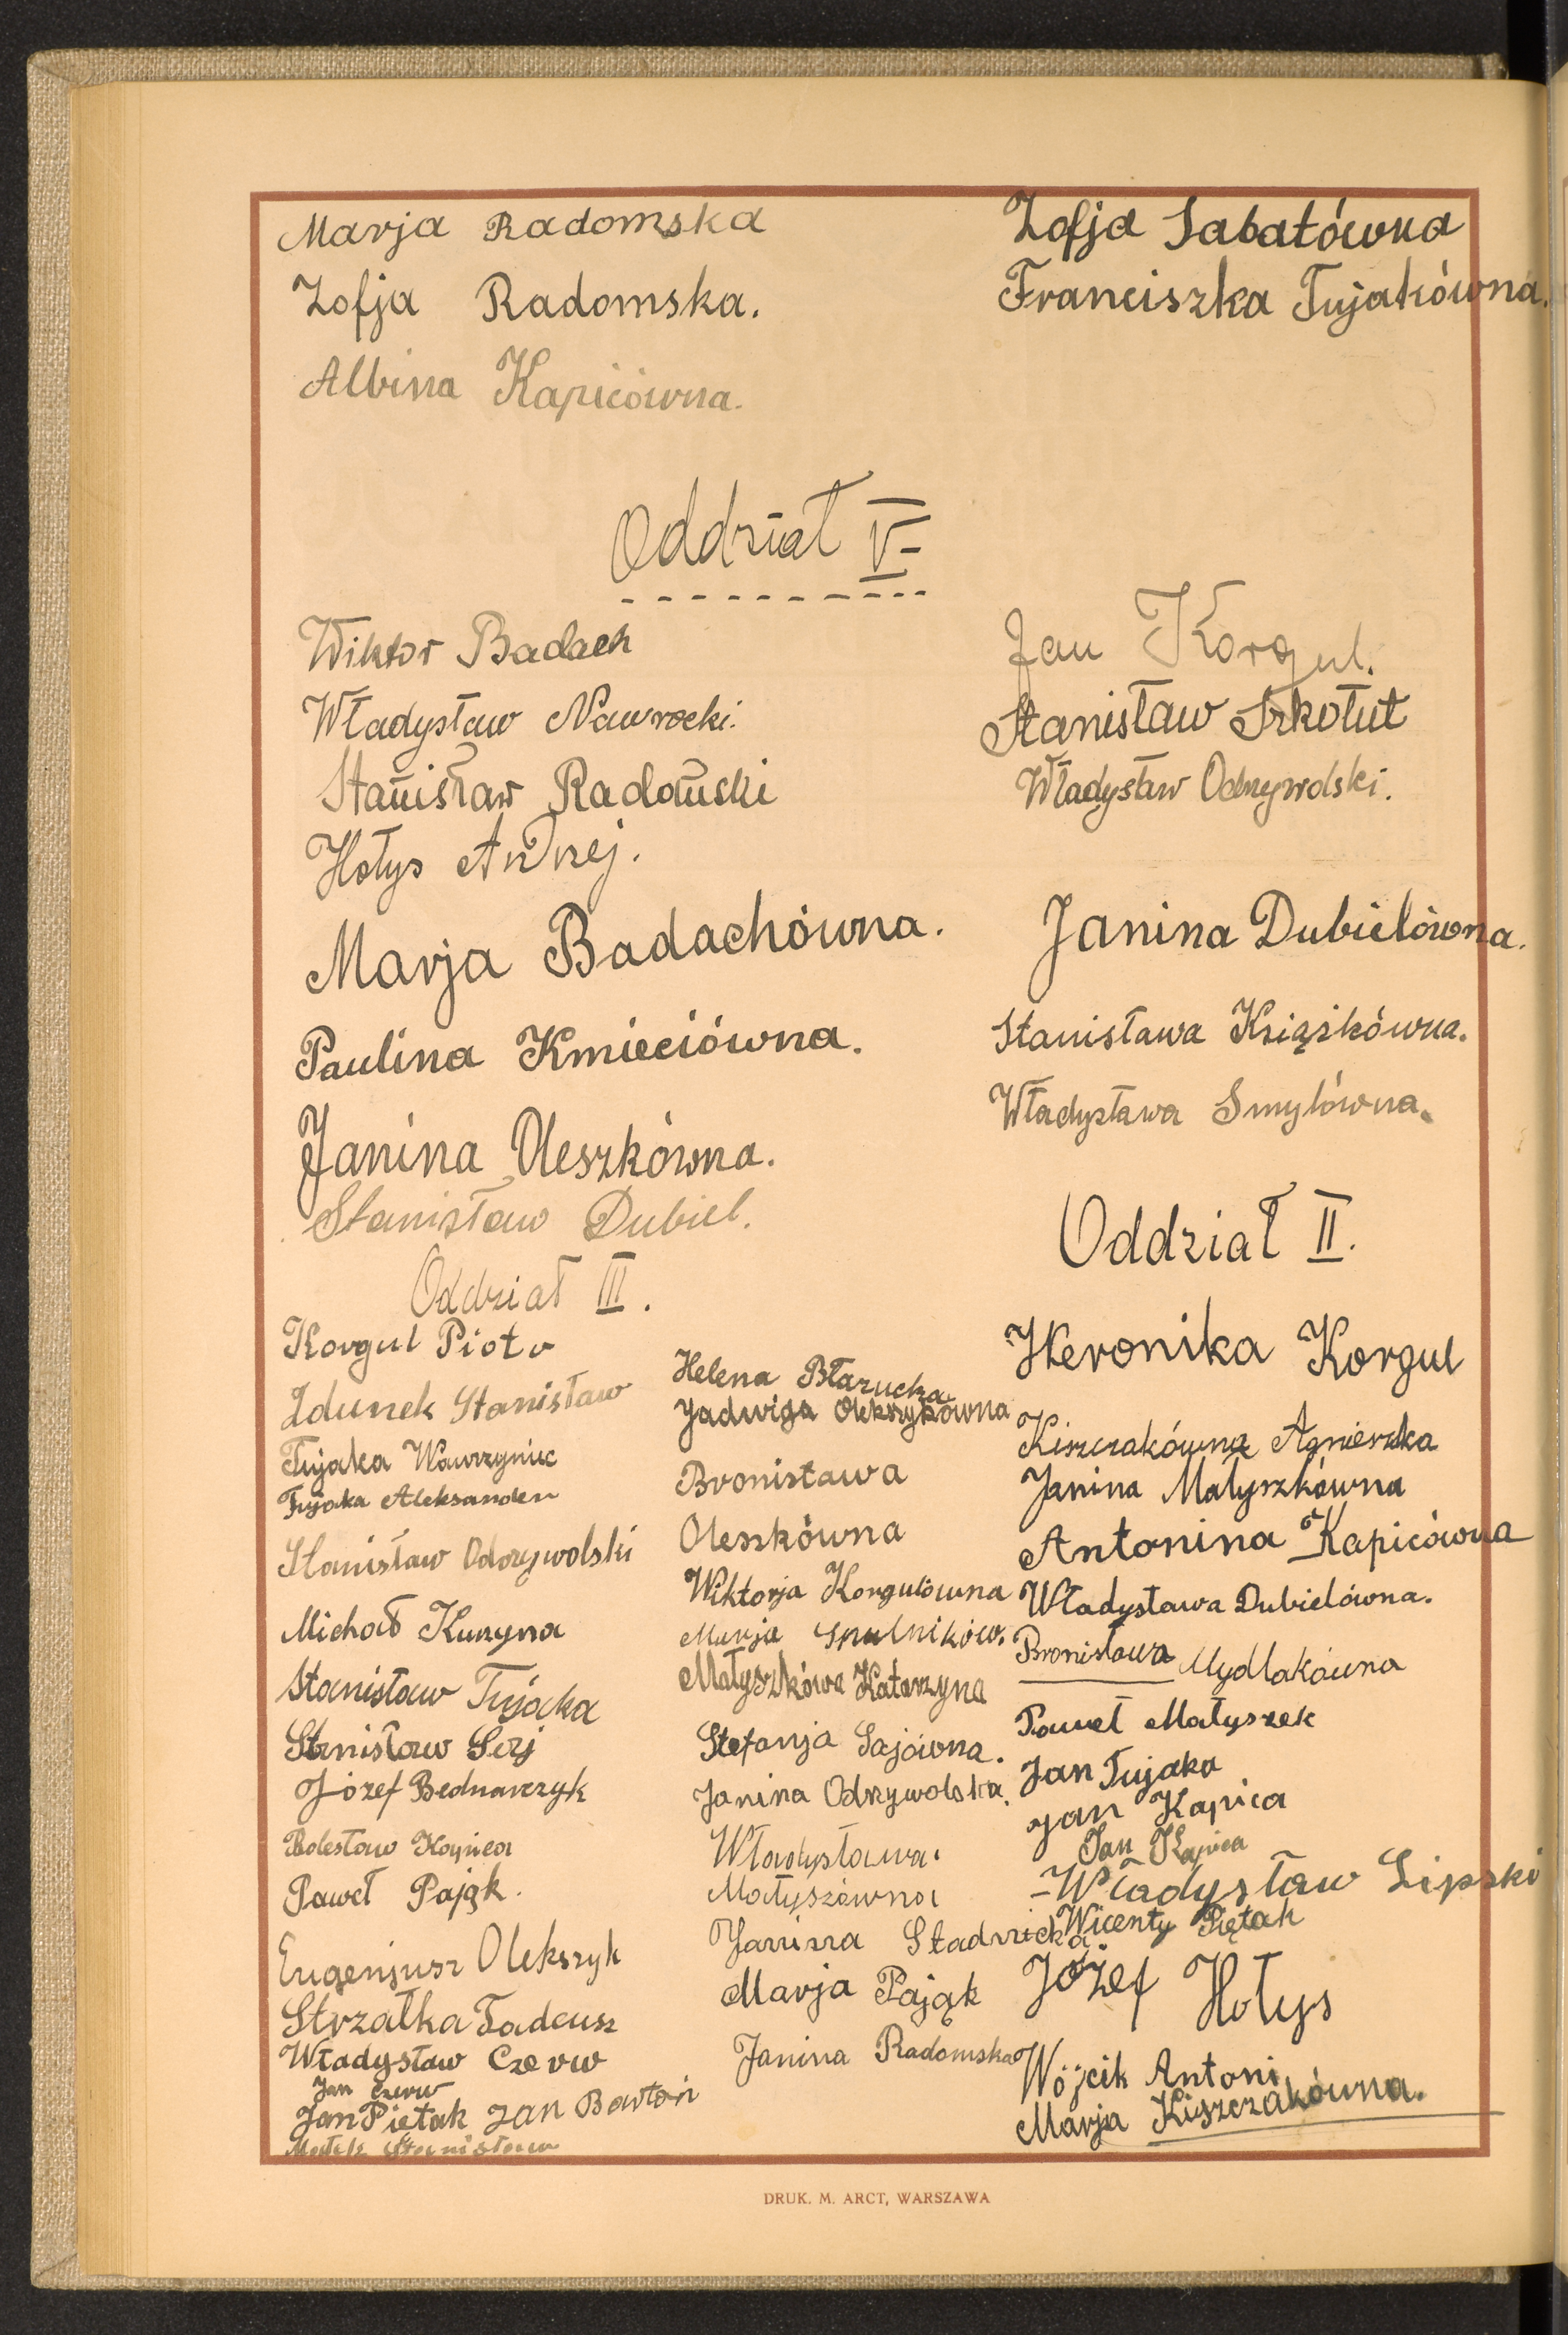 Marja Radomska
Zofja Radomska.
Albina Kapicówna.
Zofja Sabatówna
Franciszka Tujakówna.
Oddział V-
Wiktor Badach
Władysław Nawrocki.
Stanisław Radomski
Hołys Andrzej.
Marja Badachówna.
Paulina Kmieciówna.
Janina Oleszkówna.
Stanisław Dubiel.
Jan Korgul.
Stanisław Szkołut
Władysław Odrzywolski.
Janina Dubielówna.
Stanisława Książkówna.
Władysława Smylówna.
Oddział III.
Korgul Piotr
Zdunek Stanisław
Tujaka Wawrzyniec
Tujaka Aleksander
Stanisław Odrzywolski
Michał Kuzyna
Stanisław Tujaka
Stanisław Serj
Józef Bednarczyk
Bolesław Kapica
Paweł Pająk.
Eugenjusz Olekszyk
Strzałka Tadeusz
Władysław Czerw
Jan Czerw
Jan Piętak Jan Bartoń
Małek Stanisław
Helena Błazucka
Jadwiga Olekszykówna
Bronisława
Oleszkówna
Wiktorja Korgulówna
Marja
Małyszkówa Katarzyna
Stefanja Sajówna.
Janina Odrzywolska.
Władysława
Małyszówna
Janina Stadnicka
Marja Pająk
Janina Radomska
Oddział II.
Weronika Korgul
Kiszczakówna Agnieszka
Janina Małyszkówna
Antonina Kapicówna
Władysława Dubielówna.
Bronisława Mydlakówna
Paweł Małyszek
Jan Tujaka
Jan Kapica
Jan Kapica
-Władysław Lipski
Wicenty Piętak
Józef Hołys
Wójcik Antoni
Marja Kiszczakówna.
DRUK. M. ARCT, WARSZAWA